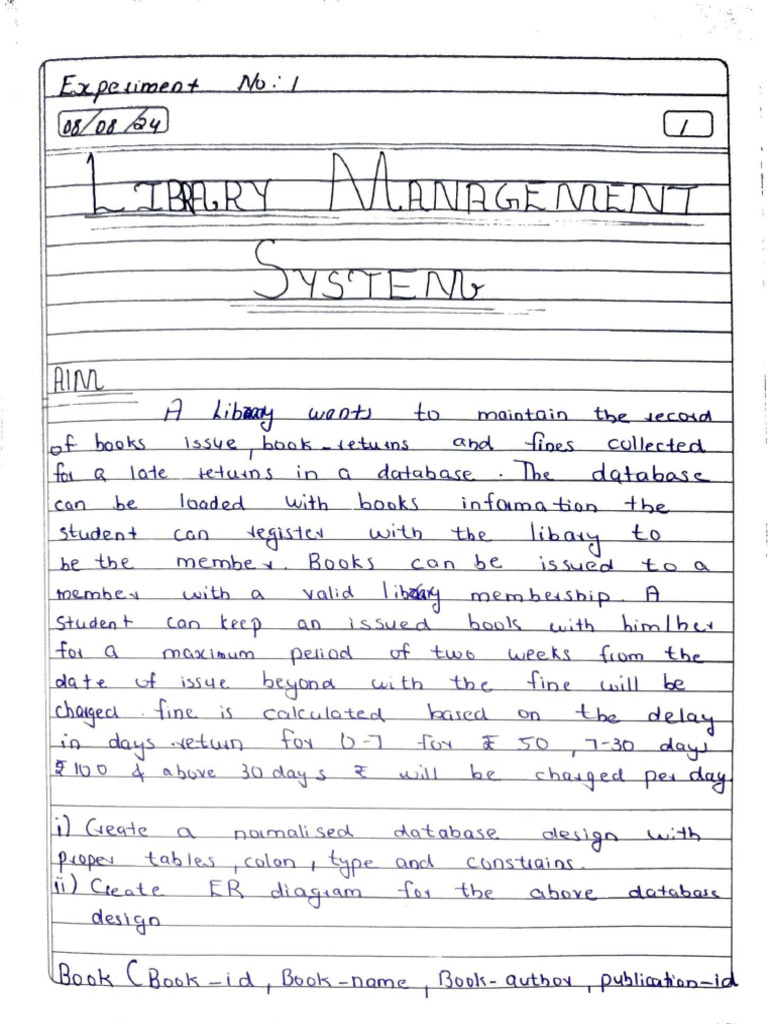 Experiment No: 1
08/08/24
1
LIBRARY MANAGEMENT
SYSTEM
AIM
A Library wants to maintain the record
of books issue, book-returns and fines collected
for a late returns in a database. The database
can be loaded with books information the
student can register with the libary to
be the member. Books can be issued to a
member with a valid library membership. A
student can keep an issued books with him/her
for a maximum period of two weeks from the
date of issue beyond with the fine will be
charged. fine is calculated based on the delay
in days return for 0-7 for ₹ 50, 7-30 days
₹100 & above 30 days ₹ will be charged per day
i) Create a normalised database design with
proper tables, colon, type and constrains.
ii) Create ER diagram for the above database
design
Book (Book-id, Book-name, Book-author, publication-id